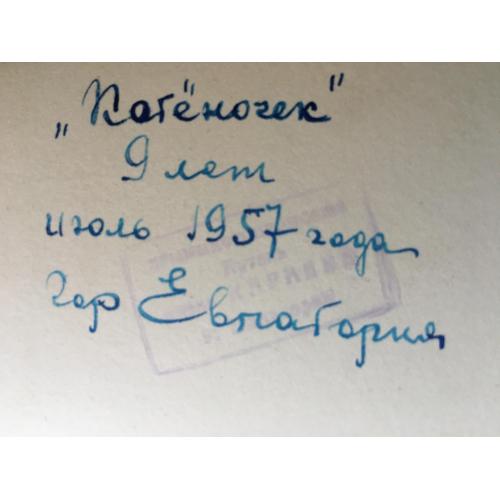 „Катёночек"
9 лет
июль 1957 года
гор Евпатория